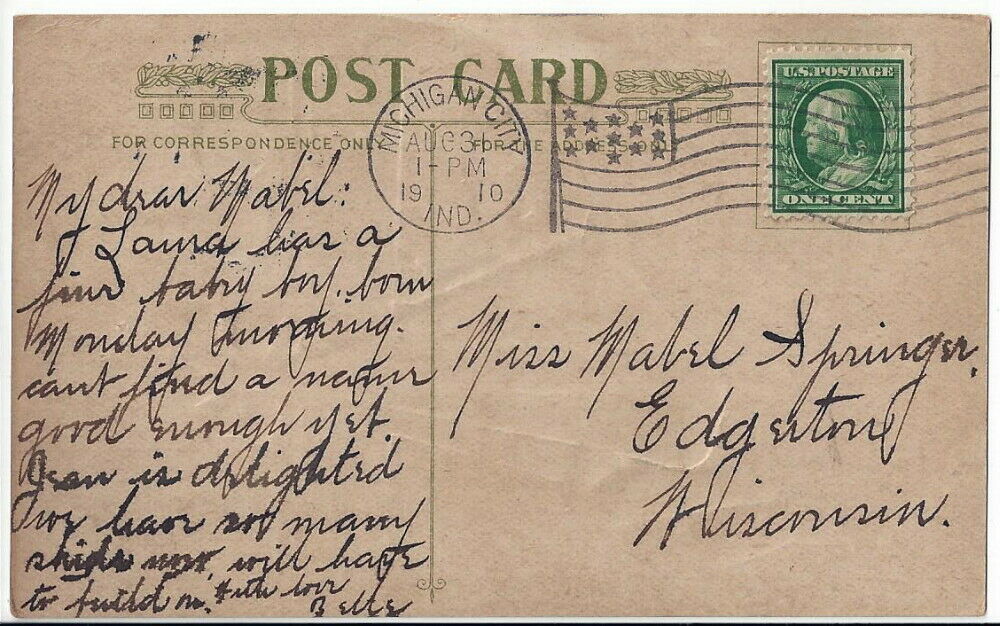 POST CARD
FOR CORRESPONDENCE ONLY
FOR THE ADDRESS ONLY
MICHIGAN CITY
AUG 31
1-PM
1910
IND.
U.S. POSTAGE
ONE CENT
My dear Mabel:
Laura has a
fine baby boy. born
Monday morning.
cant find a name
good enough yet.
Jean is delighted
we have so many
now. will have
to build on. With love
Belle
Miss Mabel Springer.
Edgerton
Wisconsin.